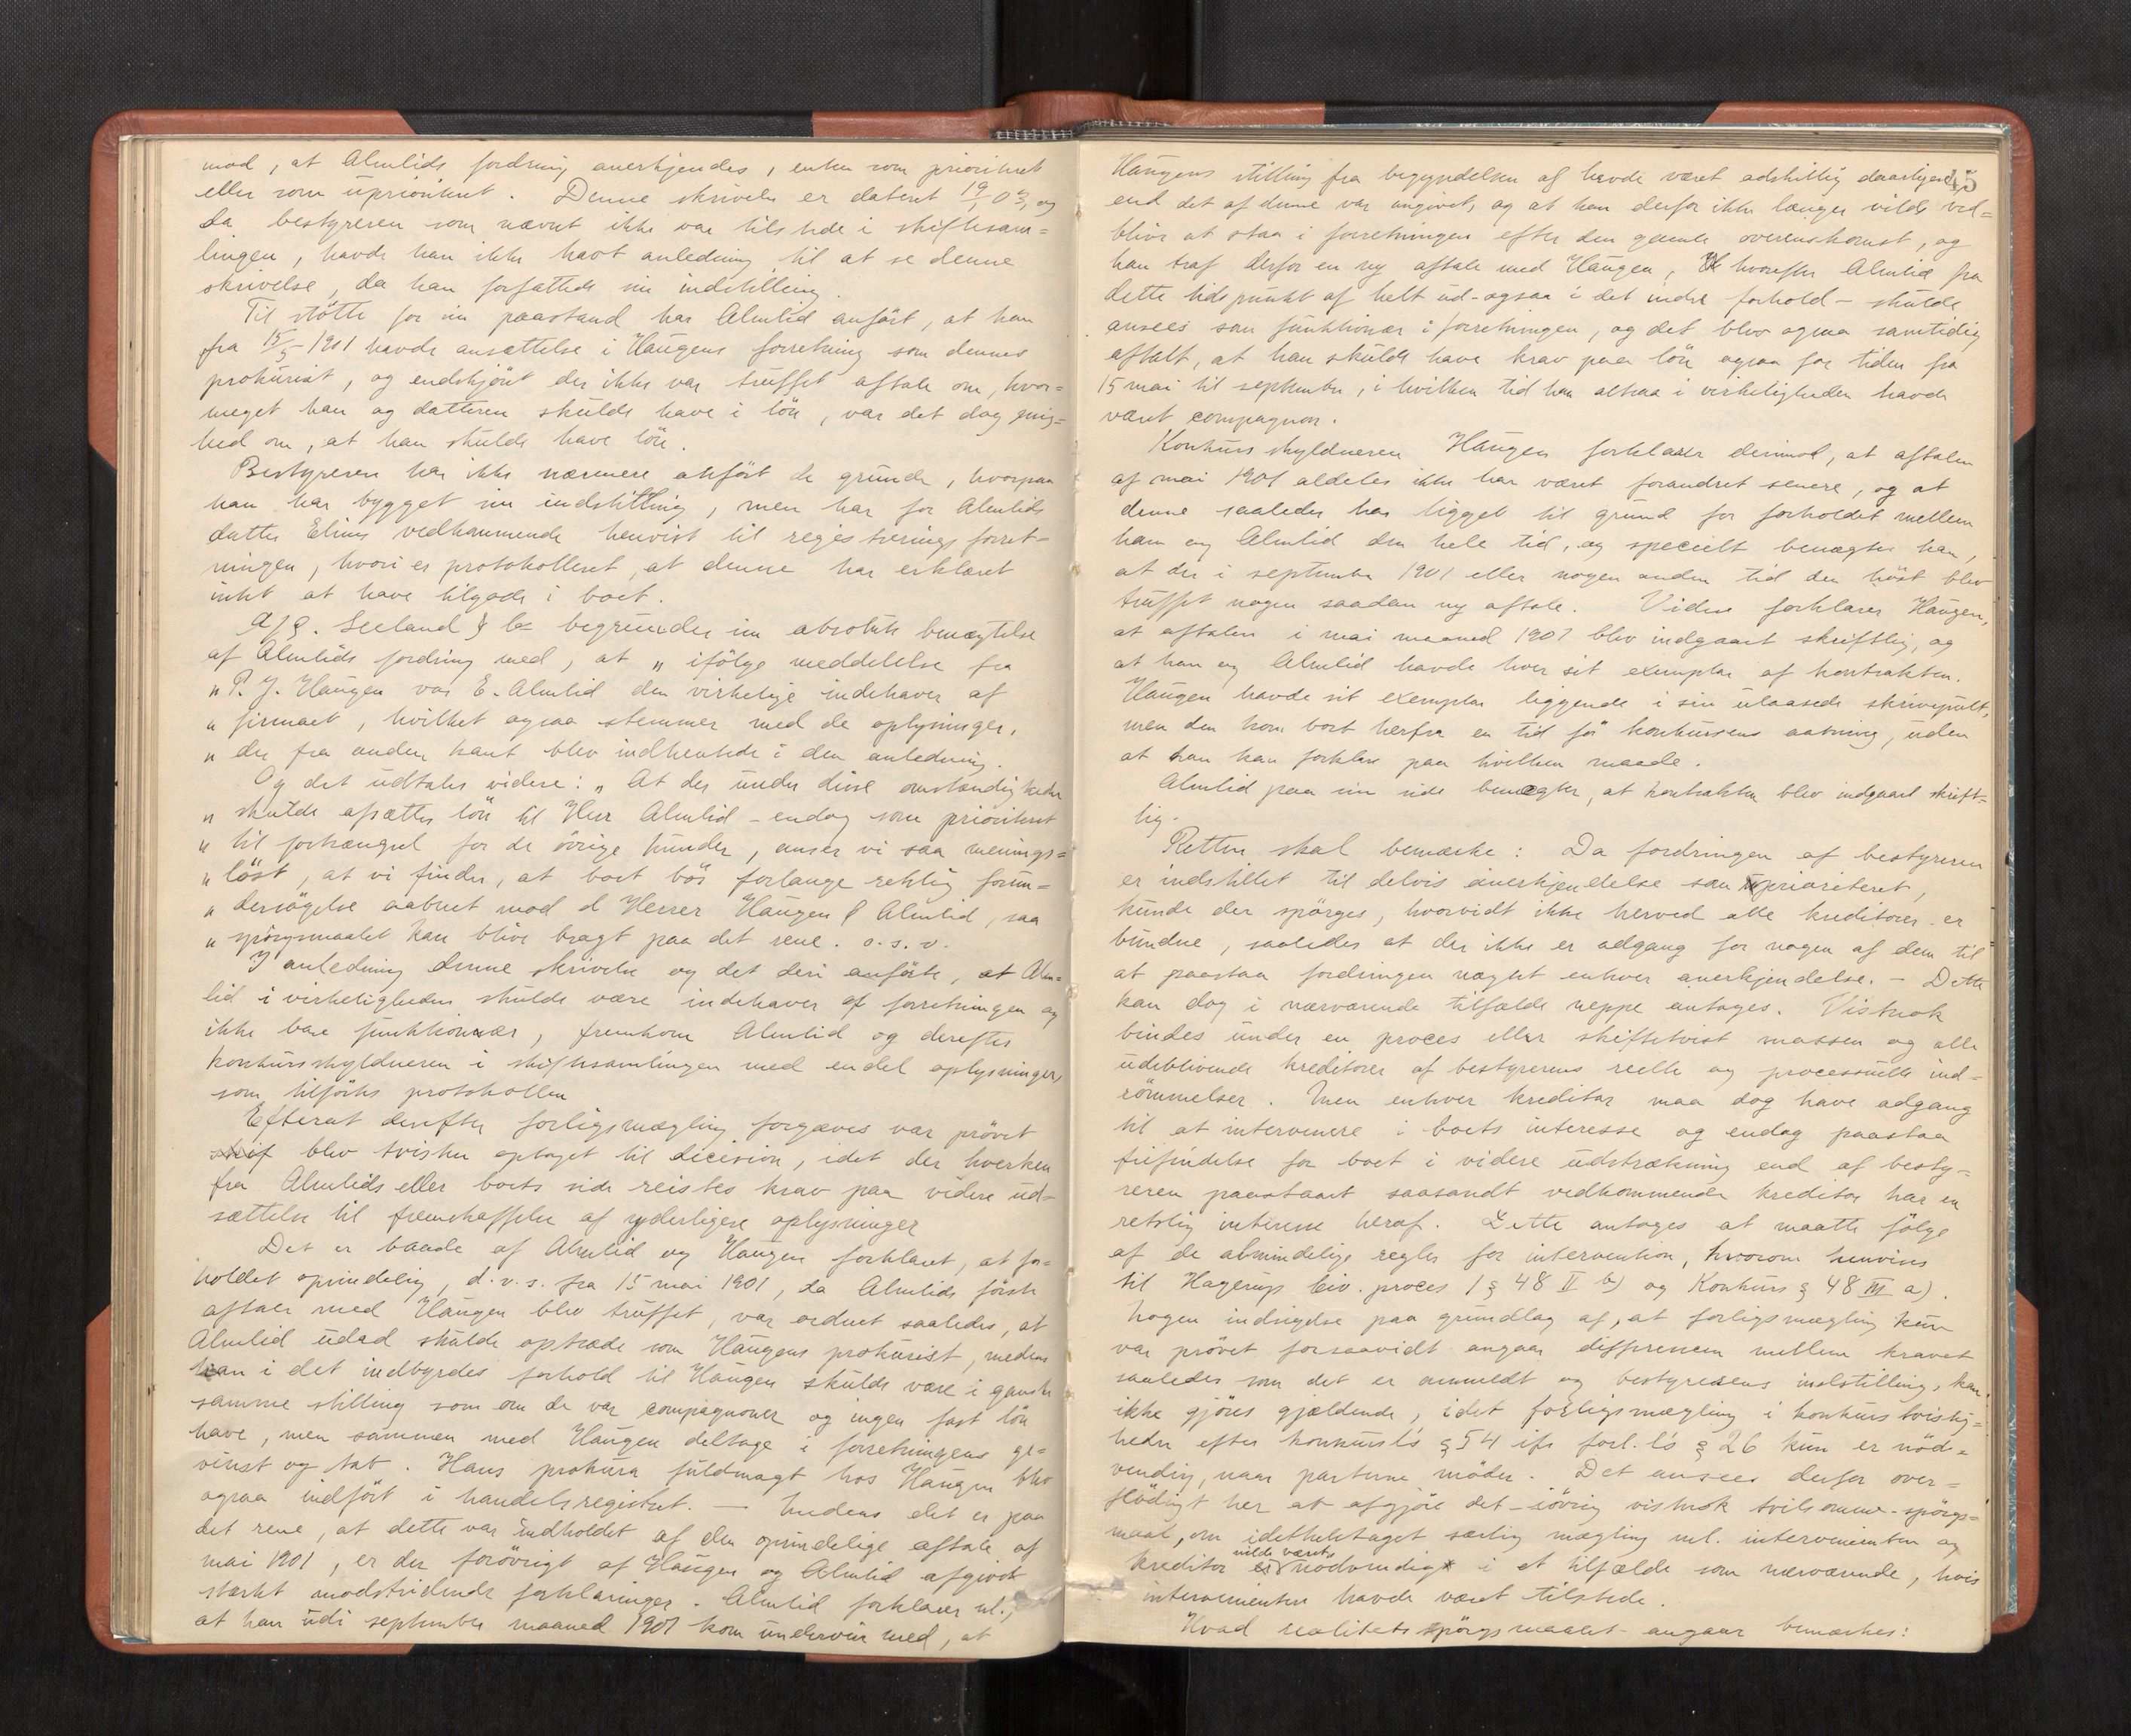 mod, at Almlids fordring anerkjendes, enten som prioriteret
eller som uprioriteret. Denne skrivelse er dateret 19/1 03, og
da bestyreren som nævnt ikke var tilstede i skiftesam=
lingen, havde han ikke havt anledning til at se denne
skrivelse, da han forfattede sin indstilling.
Til støtte for sin paastand har Almlid anført, at han
fra 15/5 1901 havde ansættelse i Haugens forretning som dennes
prokurist, og endskjönt der ikke var truffet aftale om, hvor=
meget han og datteren skulde have i lön, var det dog enig=
hed om, at han skulde have lön.
Bestyreren har ikke nærmere anfört de grunde, hvorpaa
han har bygget sin indstilling, men har for Almlids
datter Elines vedkommende henvist til registrerings forret=
ningen, hvori er protokolleret, at denne har erklæret
intet at have tilgode i boet.
A/S. Seeland begrunder sin absolute benægtelse
af Almlids fordring med, at „ifölge meddelelse fra
„P. J. Haugen var E. Almlid den virkelige indehaver af
„firmaet, hvilket ogsaa stemmer med de oplysninger,
„der fra anden kant blev indhentede i den anledning.
Og det udtales videre: „At der under disse omstændigheder
„skulde afsættes lön til Herr Almlid - endog som prioriteret
„til fortrængsel for de övrige kunder, anser vi saa menings=
„löst, at vi finder, at boet bör forlange retslig forun=
„dersögelse aabnet mod d Herrer Haugen & Almlid, saa
„spörgsmaalet kan blive bragt paa det rene. o.s.v.
I anledning denne skrivelse og det deri anförte, at Alm=
lid i virkeligheden skulde være indehaver af forretningen og
ikke bare funktionær, fremkom Almlid og derefter
konkursskyldneren i skiftesamlingen med endel oplysninger,
som tilförtes protokollen
Efterat derefter forligsmægling forgjæves var prövet
blev tvisten optaget til decision, idet der hverken
fra Almlids eller boets side reistes krav paa videre ud=
sættelse til fremskaffelse af yderligere oplysninger
Det er baade af Almlid og Haugen forklaret, at for=
holdet oprindelig, d.v.s. fra 15 mai 1901, da Almlids förste
aftale med Haugen blev truffet, var ordnet saaledes, at
Almlid udad skulde optræde som Haugens prokurist, medens
han i det indbyrdes forhold til Haugen skulde være i ganske
samme stilling som om de var compagnoner og ingen fast lön
have, men sammen med Haugen deltage i forretningens ge=
vinst og tab. Hans prokura fuldmagt hos Haugen blev
ogsaa indfört i handelsregistret. — Medens det er paa
det rene, at dette var indholdet af den oprindelige aftale af
mai 1901, er der forövrigt af Haugen og Almlid afgivet
stærkt modstridende forklaringer. Almlid forklarer nl.,
at han udi september maaned 1901 kom underveir med, at
15
Haugens stilling fra begyndelsen af havde været adskillig daarligere,
end det af denne var angivet, og at han derfor ikke længer vilde ved=
blive at staa i forretningen efter den gamle overenskomst, og
han traf derfor en ny aftale med Haugen, hvorefter Almlid fra
dette tidspunkt af helt ud - ogsaa i det indre forhold - skulde
ansees som funktionær i forretningen, og det blev ogsaa samtidig
aftalt, at han skulde have krav paa lön ogsaa for tiden fra
15 mai til september, i hvilken tid han altsaa i virkeligheden havde
været compagnon.
Konkursskyldneren Haugen forklarer derimod, at aftalen
af mai 1901 aldeles ikke har været forandret senere, og at
denne saaledes har ligget til grund for forholdet mellem
ham og Almlid den hele tid, og specielt benægter han,
at der i september 1901 eller nogen anden tid den höst blev
truffet nogen saadan ny aftale. Videre forklarer Haugen,
at aftalen i mai maaned 1901 blev indgaaet skriftlig, og
at han og Almlid havde hver sit exemplar af kontrakten.
Haugen havde sit exemplar liggende i sin ulaasede skrivepult,
men den kom bort herfra en tid för konkursens aabning, uden
at han kan forklare paa hvilken maade.
Almlid paa sin side benægter, at kontrakten blev indgaaet skrift=
lig.
Retten skal bemærke: Da fordringen af bestyreren
er indstillet til delvis anerkjendelse som uprioriteret,
kunde der spörges, hvorvidt ikke herved alle kreditorer er
bundne, saaledes at der ikke er adgang for nogen af dem til
at paastaa fordringen nægtet enhver anerkjendelse. - Dette
kan dog i nærværende tilfælde neppe antages. Vistnok
bindes under en proces eller skiftetvist massen og alle
udeblivende kreditorer af bestyrerens reelle og processuelle ind=
römmelser. Men enhver kreditor maa dog have adgang
til at intervenere i boets interesse og endog paastaa
frifindelse for boet i videre udstrækning end af besty=
reren paastaaet saasandt vedkommende kreditor har en
retslig interesse heraf. Dette antages at maatte fölge
af de almindelige regler for intervention, hvorom henvises
til Hagerups Civ. proces I § 48 II b) og Konkurs § 48 III a).
Nogen indsigelse paa grundlag af, at forligsmægling kun
var prövet forsaavidt angaar differencen mellem kravet
saaledes som det er anmeldt og bestyrerens indstilling, kan
ikke gjöres gjældende, idet forligsmægling i konkurs tvistig=
heder efter konkursl's § 54 jfr forl. l's § 26 kun er nöd=
vendig, naar parterne möder. Det ansees derfor over=
flödigt her at afgjöre det - iövrig vistnok tvilsomme - spörgs=
maal, om idetheletaget særlig mægling ml. intervenienten og
kreditor vilde været nödvendig i et tilfælde som nærværende, hvis
intervenienten havde været tilstede.
Hvad realitetsspörgsmaalet angaar bemærkes: